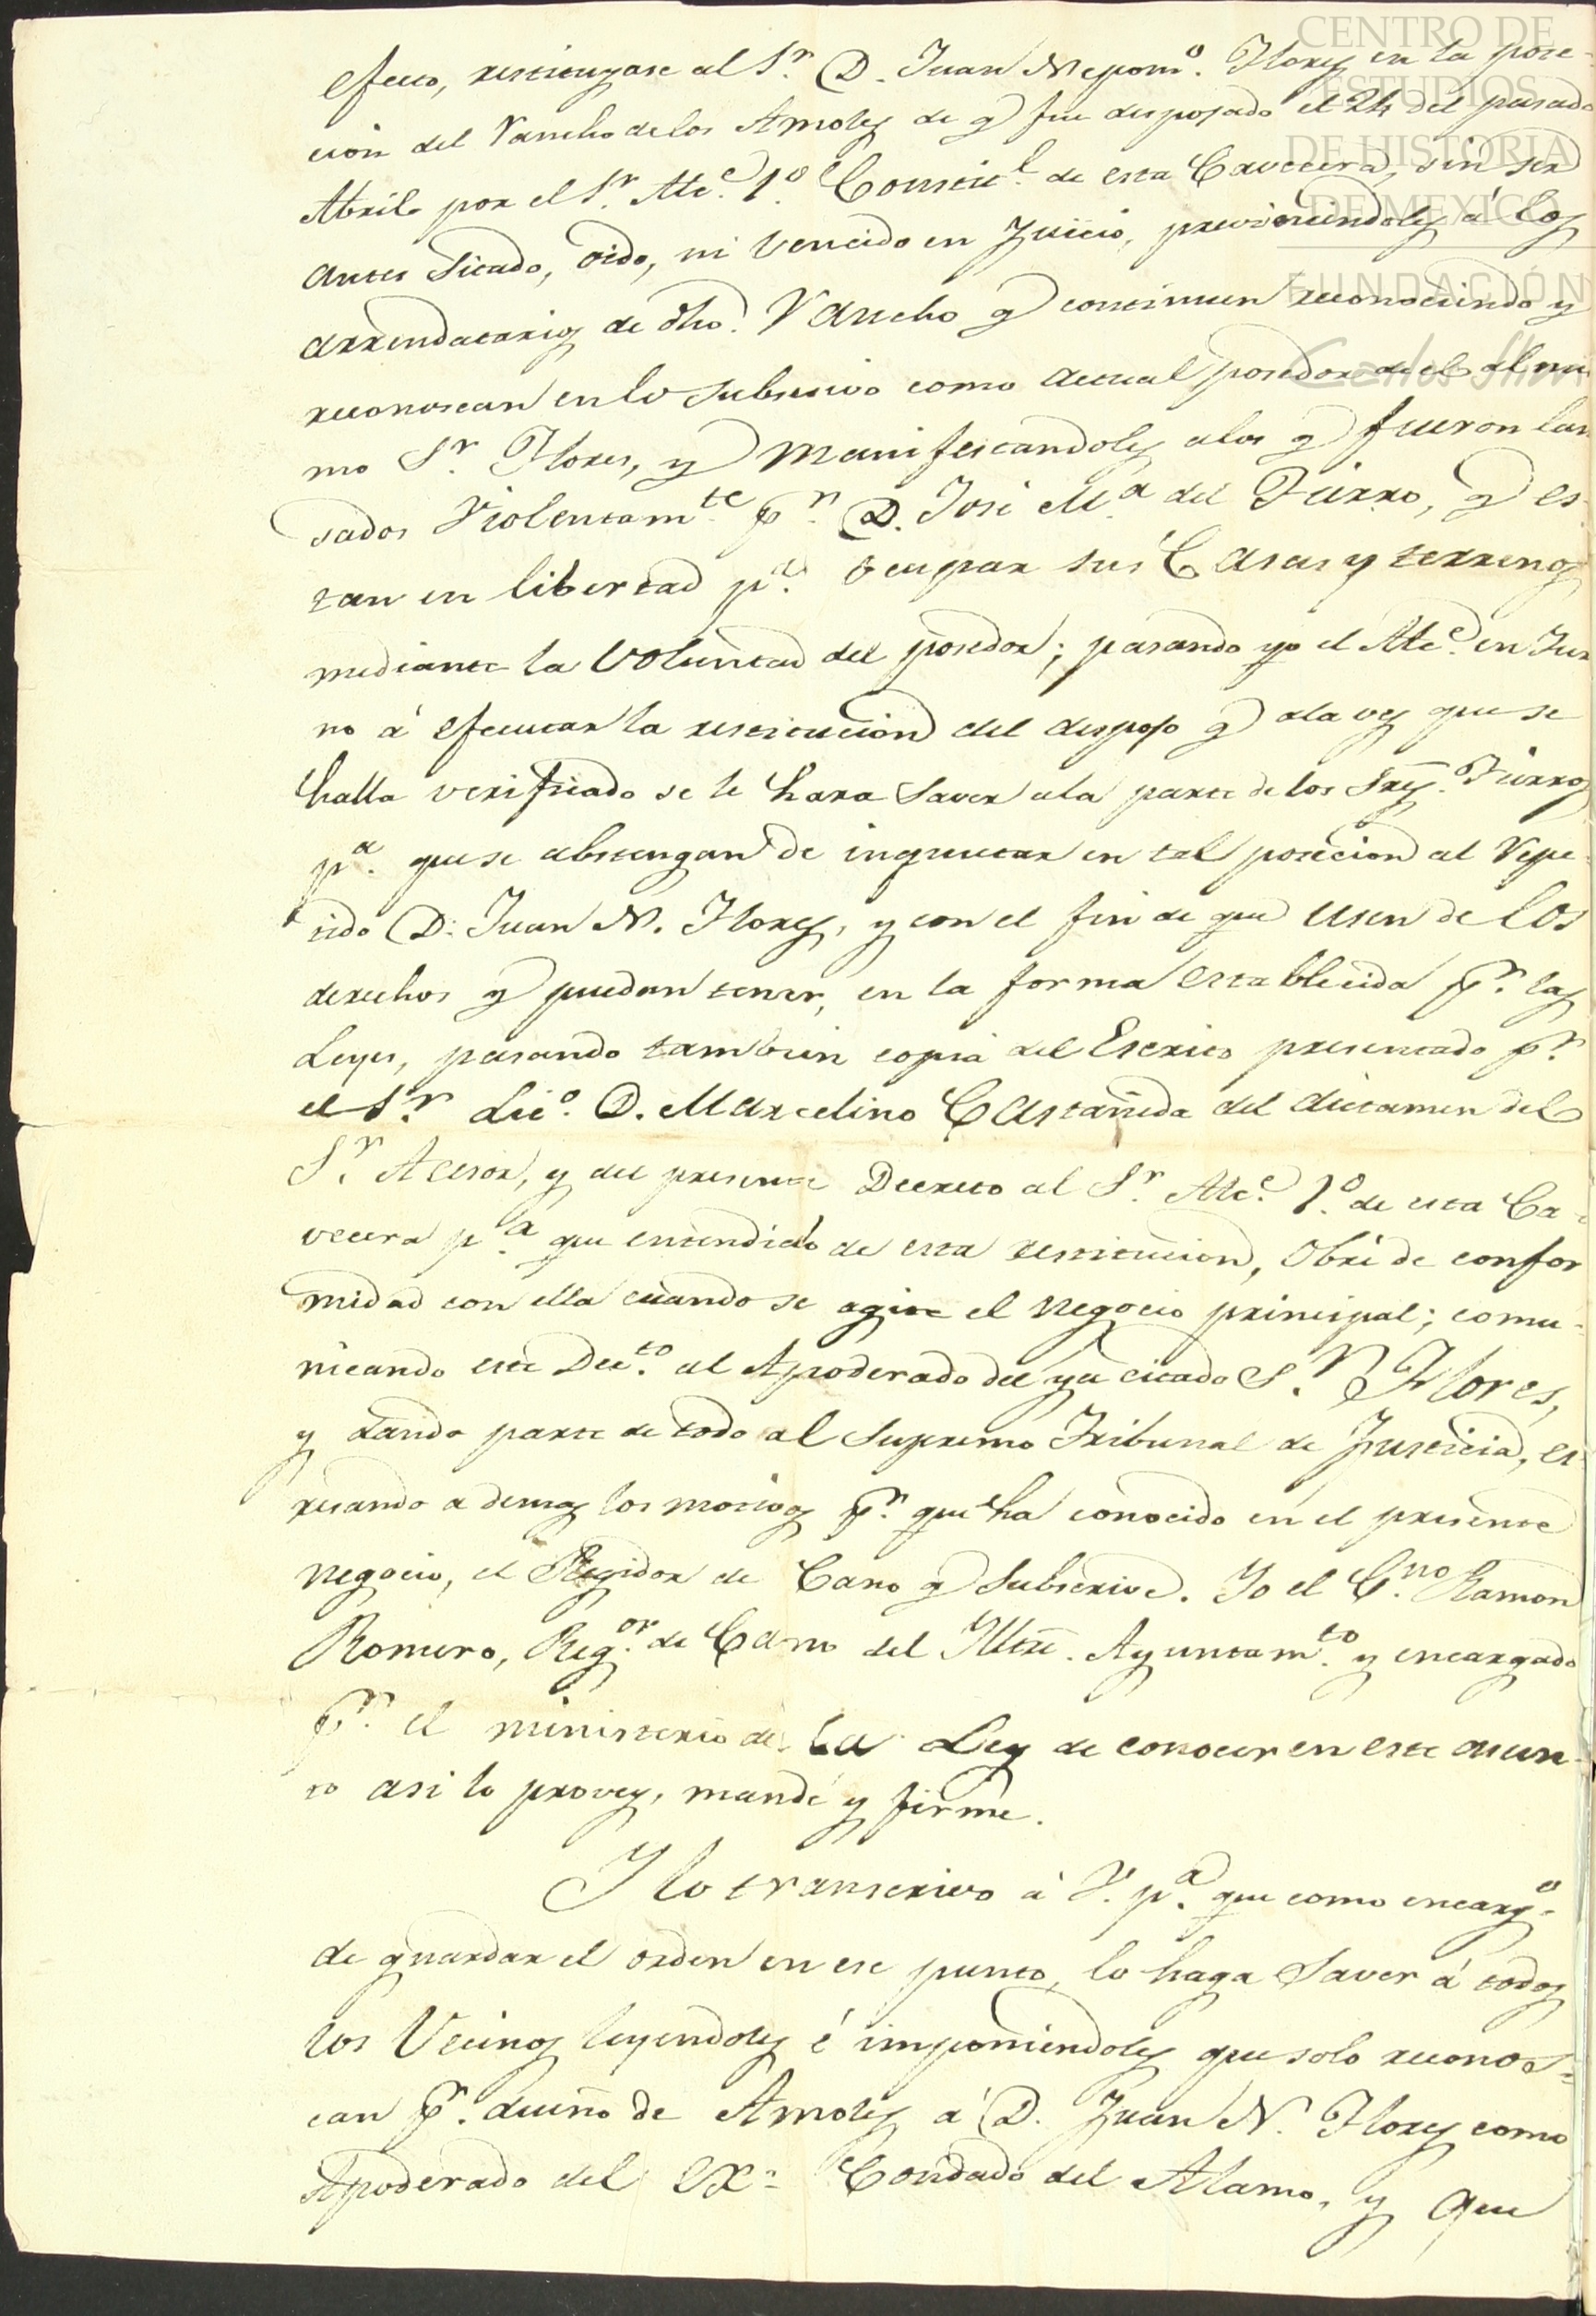 CENTRO DE
ESTUDIOS
DE HISTORIA
DE MEXICO
FUNDACIÓN
Carlos Slim
efecto, restituyase al Sr. D. Juan Nepomo. Flores en la pose-
cion del Rancho de los Amoles de q fue despojado el 24 del pasado
Abril por el Sr. Alce. 1o. Constitl. de esta Cavecera, sin ser
antes Sitado, oido, ni Vencido en Juicio, previniendoles á los
arrendatarios de dho. Rancho q continuen reconociendo y
reconoscan en lo Subsesivo como actual posedor de el al mis
mo Sr. Flores, y Manifestandoles a los q fueron lan
sados Violentamte. pr. D. José Ma. del Fierro, q es
tan en libertad pa. ocupar sus Casas y terrenos
mediante la Voluntad del posedor; pasando yo el Alce. en Tur
no á efecutar la restitucion del despojo q a la ves que se
halla verificado se le hara Saver a la parte de los Sres. Fierros
pa. que se abstengan de inquietar en tal posecion al Repe-
tido D. Juan N. Flores, y con el fin de que Usen de los
derechos q puedan tener, en la forma establecida pr. las
Leyes, pasando tambien copia del Escrito presentado pr.
el Sr. Lico. D. Marcelino Castañeda del dictamen del
Sr. Acesor, y del presente Decreto al Sr. Alce. 1o. de esta Ca-
vecera pa. que entendido de esta restitucion, Obre de confor
midad con ella cuando se agite el Negocio principal; comu-
nicando este Decto. al Apoderado del ya citado Sr. Flores,
y dando parte de todo al Supremo Tribunal de Justicia, es
resando ademas los motivos pr. que ha conocido en el presente
Negocio, el Regidor de Cano q Subscrive. Yo el Cno. Ramon
Romero, Regor. de Cano del Iltre. Ayuntamto. y encargado
pr. el ministerio de la Ley de conocer en este asun-
to asi lo provey, mandé y firmé.
Y lo transcrivo á V. pa. que como encargo.
de guardar el orden en ese punto, lo haga Saver á todos
los Vecinos leyendoles é imponiendoles que solo reconos-
can pr. dueño de Amoles á D. Juan N. Flores como
Apoderado del Ex- Condado del Alamo, y que